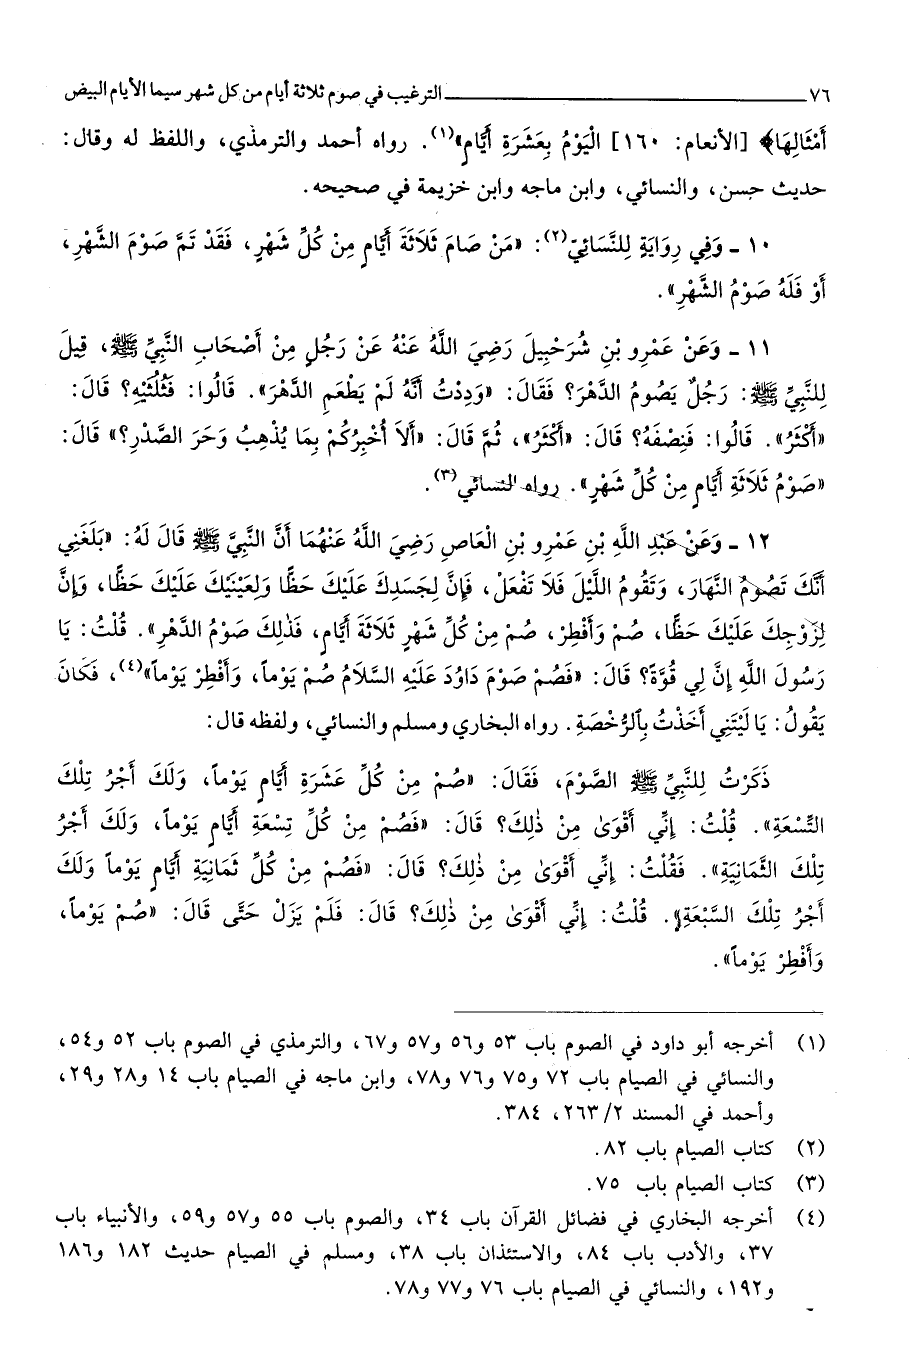 ٧٦ ــــــــــــــــــ الترغيب في صوم ثلاثة أيام من كل شهر سيما الأيام البيض
أَمْثَالِهَا﴾ [الأنعام: ١٦٠] الْيَوْمُ بِعَشَرَةِ أَيَّامٍ»(١). رواه أحمد والترمذي، واللفظ له وقال:
حديث حسن، والنسائي، وابن ماجه وابن خزيمة في صحيحه.
١٠ ـ وَفِي رِوَايَةٍ لِلنَّسَائِيّ(٢): «مَنْ صَامَ ثَلَاثَةَ أَيَّامٍ مِنْ كُلِّ شَهْرٍ، فَقَدْ تَمَّ صَوْمُ الشَّهْرِ،
أَوْ فَلَهُ صَوْمُ الشَّهْرِ».
١١ ـ وَعَنْ عَمْرِو بْنِ شُرَحْبِيلَ رَضِيَ اللَّهُ عَنْهُ عَنْ رَجُلٍ مِنْ أَصْحَابِ النَّبِيِّ ﷺ، قِيلَ
لِلنَّبِيِّ ﷺ: رَجُلٌ يَصُومُ الدَّهْرَ؟ فَقَالَ: «وَدِدْتُ أَنَّهُ لَمْ يَطْعَمِ الدَّهْرَ». قَالُوا: فَثُلُثَيْهِ؟ قَالَ:
«أَكْثَرُ». قَالُوا: فَنِصْفَهُ؟ قَالَ: «أَكْثَرُ»، ثُمَّ قَالَ: «أَلاَ أُخْبِرُكُمْ بِمَا يُذْهِبُ وَحَرَ الصَّدْرِ؟» قَالَ:
«صَوْمُ ثَلَاثَةِ أَيَّامٍ مِنْ كُلِّ شَهْرٍ». رواه النسائي(٣).
١٢ ـ وَعَنْ عَبْدِ اللَّهِ بْنِ عَمْرِو بْنِ الْعَاصِ رَضِيَ اللَّهُ عَنْهُمَا أَنَّ النَّبِيَّ ﷺ قَالَ لَهُ: «بَلَغَنِي
أَنَّكَ تَصُومُ النَّهَارَ، وَتَقُومُ اللَّيْلَ فَلاَ تَفْعَلْ، فَإِنَّ لِجَسَدِكَ عَلَيْكَ حَظًّا وَلِعَيْنَيْكَ عَلَيْكَ حَظًّا، وَإِنَّ
لِزَوْجِكَ عَلَيْكَ حَظًّا، صُمْ وَأَفْطِرْ، صُمْ مِنْ كُلِّ شَهْرٍ ثَلاَثَةَ أَيَّامٍ، فَذٰلِكَ صَوْمُ الدَّهْرِ». قُلْتُ: يَا
رَسُولَ اللَّهِ إِنَّ لِي قُوَّةً؟ قَالَ: «فَصُمْ صَوْمَ دَاوُدَ عَلَيْهِ السَّلاَمُ صُمْ يَوْماً، وَأَفْطِرْ يَوْماً»(٤)، فَكَانَ
يَقُولُ: يَا لَيْتَنِي أَخَذْتُ بِالرُّخْصَةِ. رواه البخاري ومسلم والنسائي، ولفظه قال:
ذَكَرْتُ لِلنَّبِيِّ ﷺ الصَّوْمَ، فَقَالَ: «صُمْ مِنْ كُلِّ عَشَرَةِ أَيَّامٍ يَوْماً، وَلَكَ أَجْرُ تِلْكَ
التِّسْعَةِ». قُلْتُ: إِنِّي أَقْوَىٰ مِنْ ذٰلِكَ؟ قَالَ: «فَصُمْ مِنْ كُلِّ تِسْعَةِ أَيَّامٍ يَوْماً، وَلَكَ أَجْرُ
تِلْكَ الثَّمَانِيَةِ». فَقُلْتُ: إِنِّي أَقْوَىٰ مِنْ ذٰلِكَ؟ قَالَ: «فَصُمْ مِنْ كُلِّ ثَمَانِيَةِ أَيَّامٍ يَوْماً وَلَكَ
أَجْرُ تِلْكَ السَّبْعَةِ». قُلْتُ: إِنِّي أَقْوَىٰ مِنْ ذٰلِكَ؟ قَالَ: فَلَمْ يَزَلْ حَتَّى قَالَ: «صُمْ يَوْماً،
وَأَفْطِرْ يَوْماً».
(١) أخرجه أبو داود في الصوم باب ٥٣ و٥٦ و٥٧ و٦٧، والترمذي في الصوم باب ٥٢ و٥٤،
والنسائي في الصيام باب ٧٢ و٧٥ و٧٦ و٧٨، وابن ماجه في الصيام باب ١٤ و٢٨ و٢٩،
وأحمد في المسند ٢/ ٢٦٣، ٣٨٤.
(٢) كتاب الصيام باب ٨٢.
(٣) كتاب الصيام باب ٧٥.
(٤) أخرجه البخاري في فضائل القرآن باب ٣٤، والصوم باب ٥٥ و٥٧ و٥٩، والأنبياء باب
٣٧، والأدب باب ٨٤، والاستئذان باب ٣٨، ومسلم في الصيام حديث ١٨٢ و١٨٦
و١٩٢، والنسائي في الصيام باب ٧٦ و٧٧ و٧٨.